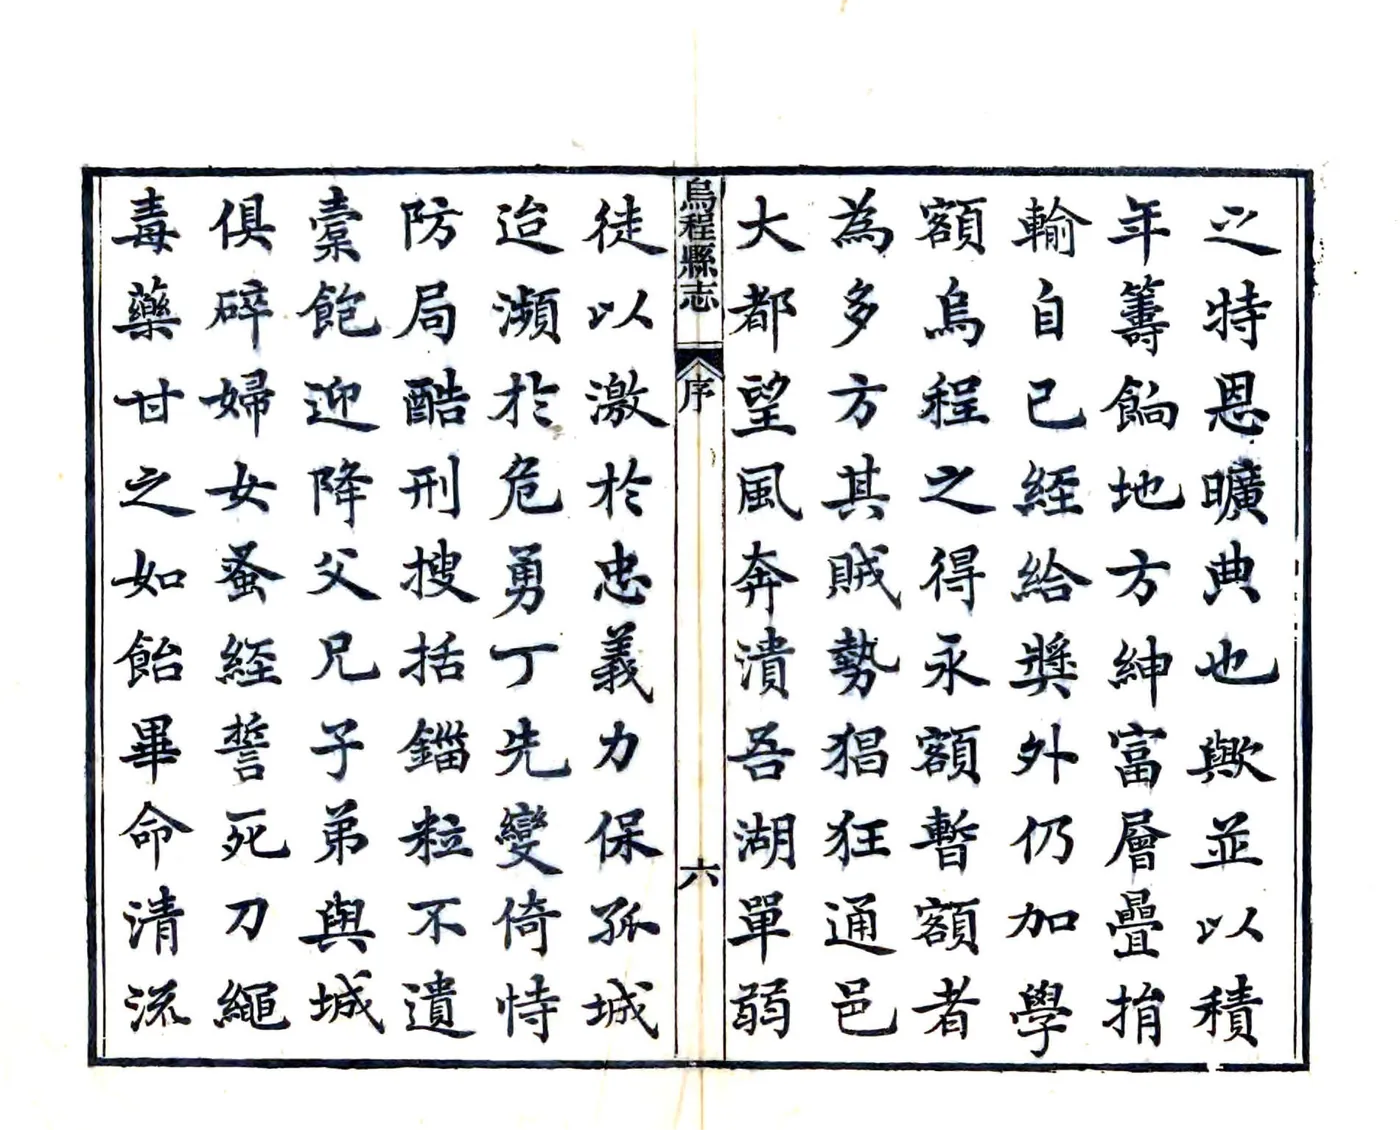 之特恩曠典也歟並以積
年籌餉地方紳富層疊捐
輸自已經給獎外仍加學
額烏程之得永額暫額者
為多方其賊勢猖狂通邑
大都望風奔潰吾湖單弱
烏程縣志
序
六
徒以激於忠義力保孤城
迨瀕於危勇丁先變倚恃
防局酷刑搜括錙粒不遺
橐飽迎降父兄子弟與城
俱碎婦女蚤經誓死刀繩
毒藥甘之如飴畢命清流